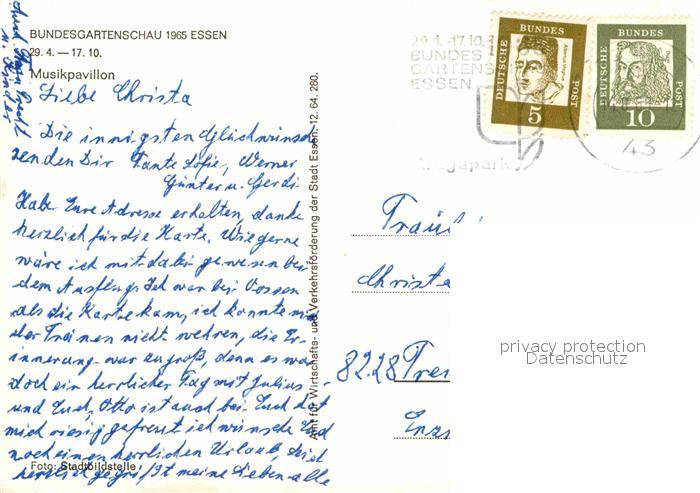 BUNDESGARTENSCHAU 1965 ESSEN
29. 4. — 17. 10.
Musikpavillon
Liebe Christa
Die innigsten Glückwünsche
senden Dir Tante Sofie, Werner
Günter u. Gerdi
Habe Eure Adresse erhalten, danke
herzlich für die Karte. Wie gerne
wäre ich mit dabei gewesen bei
dem Ausflug. Ich war bei
als die Karte kam, ich konnte mich
der Tränen nicht wehren, die Er-
innerung war zu groß, denn es war
doch ein herrlicher Tag mit Julius
und Euch, Otto ist auch bei Euch hat
mich riesig gefreut ich wünsche Euch
noch einen herrlichen Urlaub, seid
herzlich gegrüßt meine Lieben alle
Foto: Stadtbildstelle
Amt für Wirtschafts- und Verkehrsförderung der Stadt Essen. 12. 64. 280.
29.4.-17.10.
BUNDES
GARTENS
ESSEN
Grugapark
43
DEUTSCHE BUNDES POST
Albertus Magnus
5
DEUTSCHE BUNDES POST
10
Fräul
Christa
8228 Frei
privacy protection
Datenschutz